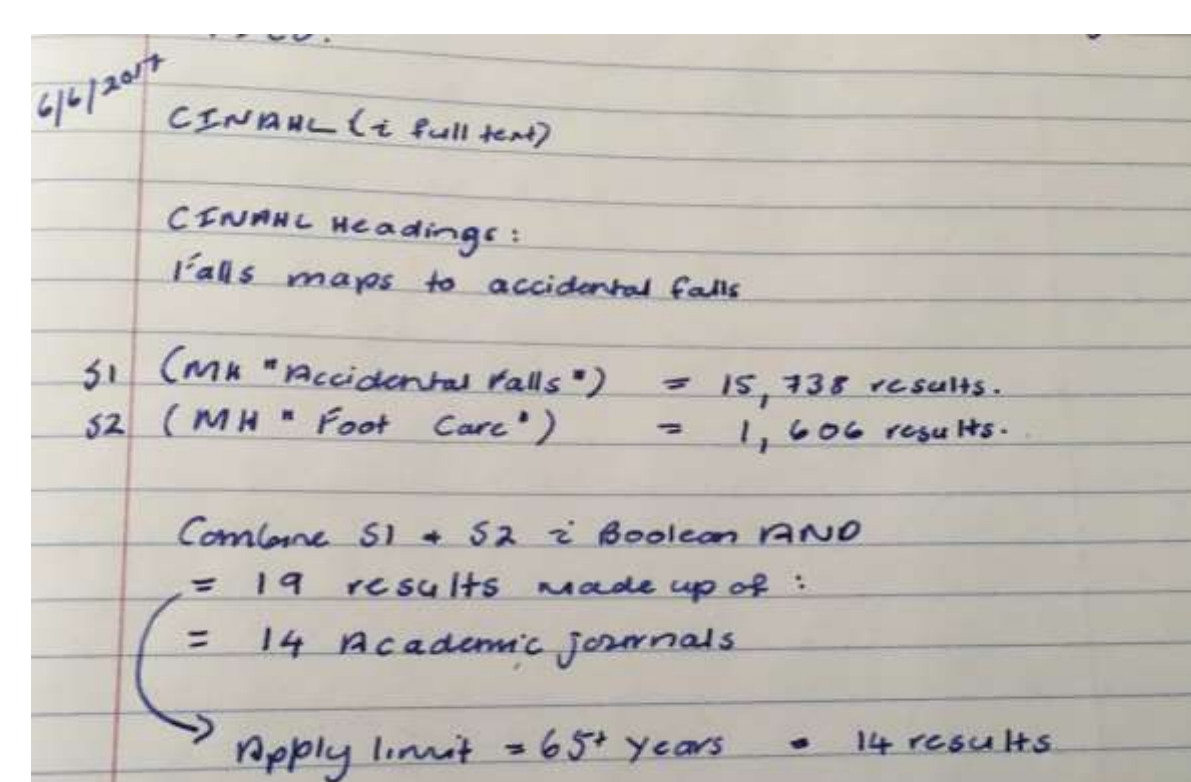 6/6/2017
CINAHL (c̄ full text)
CINAHL Headings:
Falls maps to accidental falls
S1 (MH "Accidental Falls") = 15,738 results.
S2 (MH "Foot Care") = 1,606 results.
Combine S1 + S2 c̄ Boolean AND
= 19 results made up of :
= 14 Academic journals
Apply limit = 65+ years = 14 results